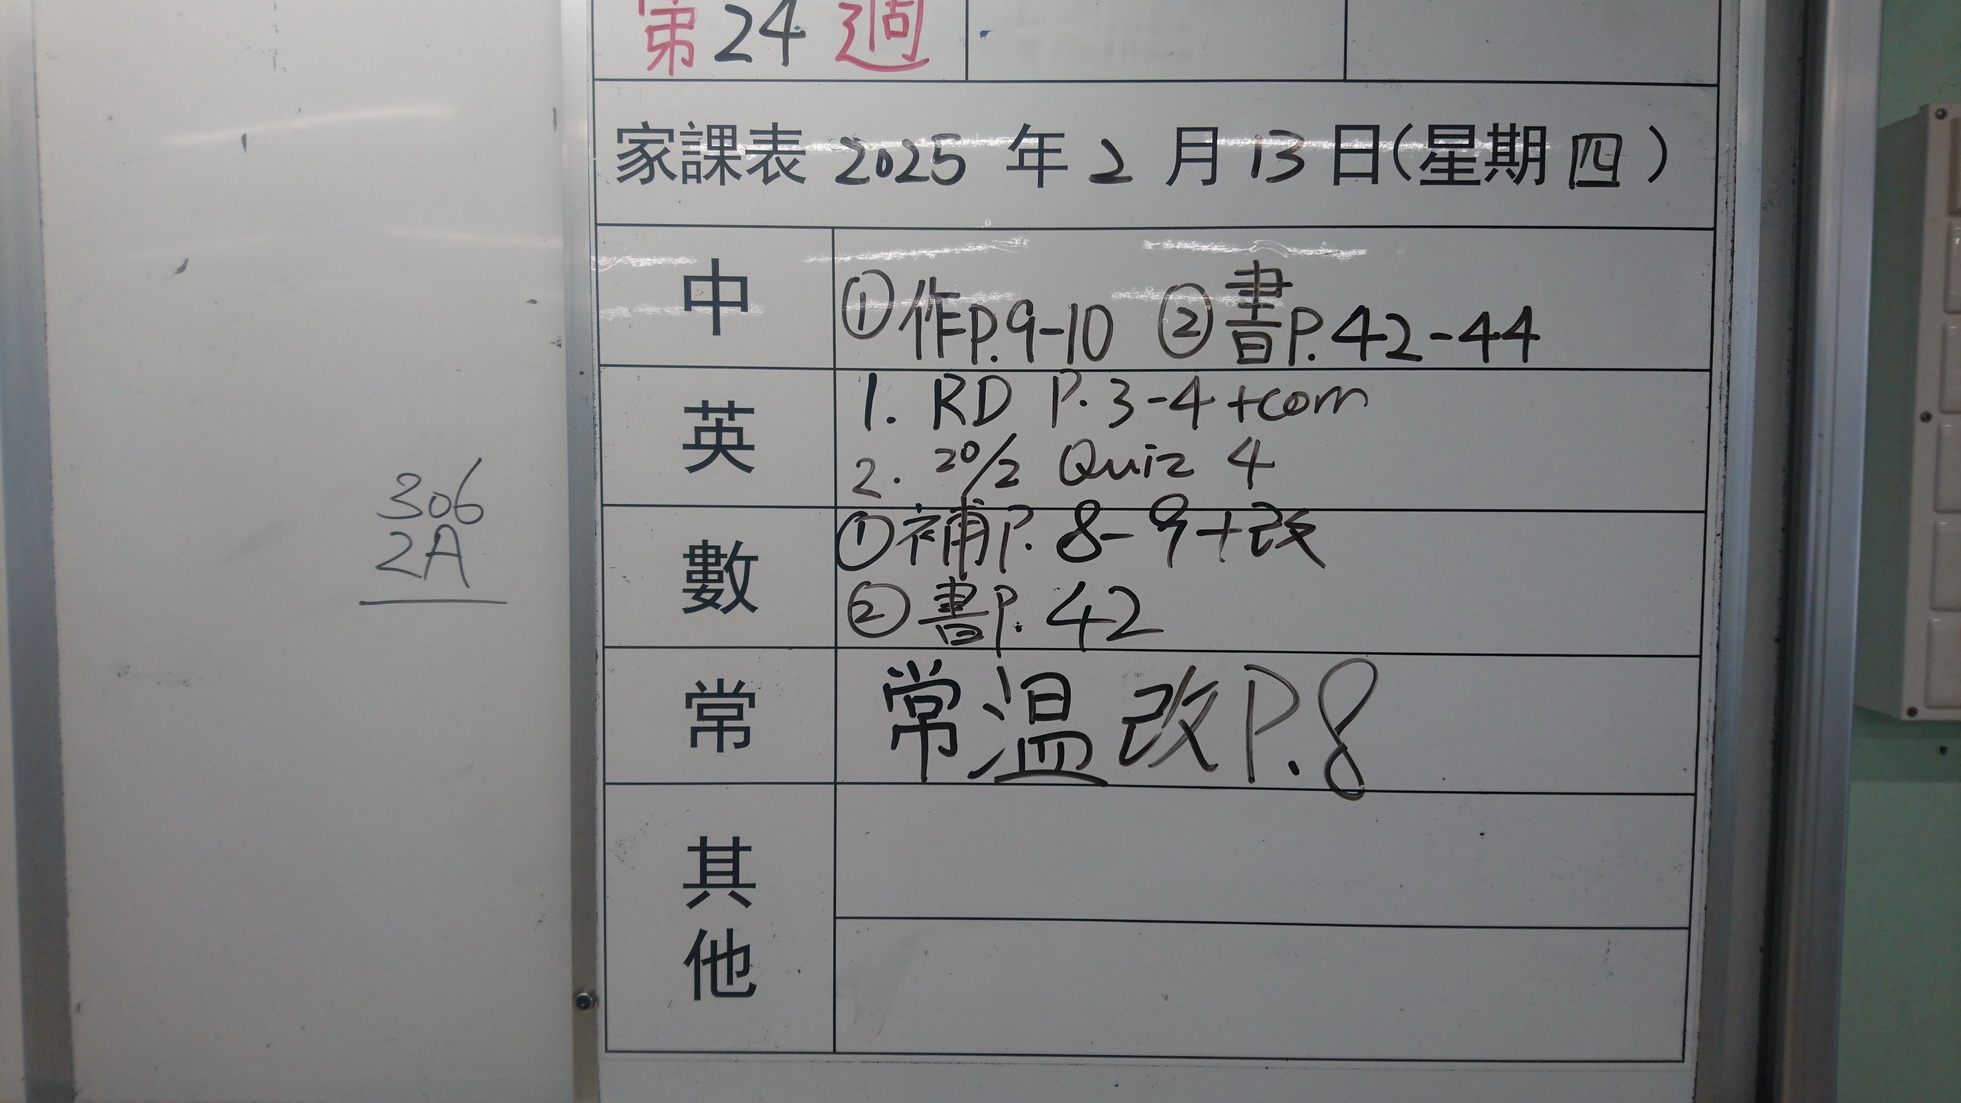 第24週
家課表 2025 年 2 月 13 日(星期四)
中 ①作P.9-10 ②書P.42-44
英 1. RD P.3-4+com
2. 20/2 Quiz 4
數 ①補P.8-9+改
②書P.42
常 常溫改P.8
其他
306
2A